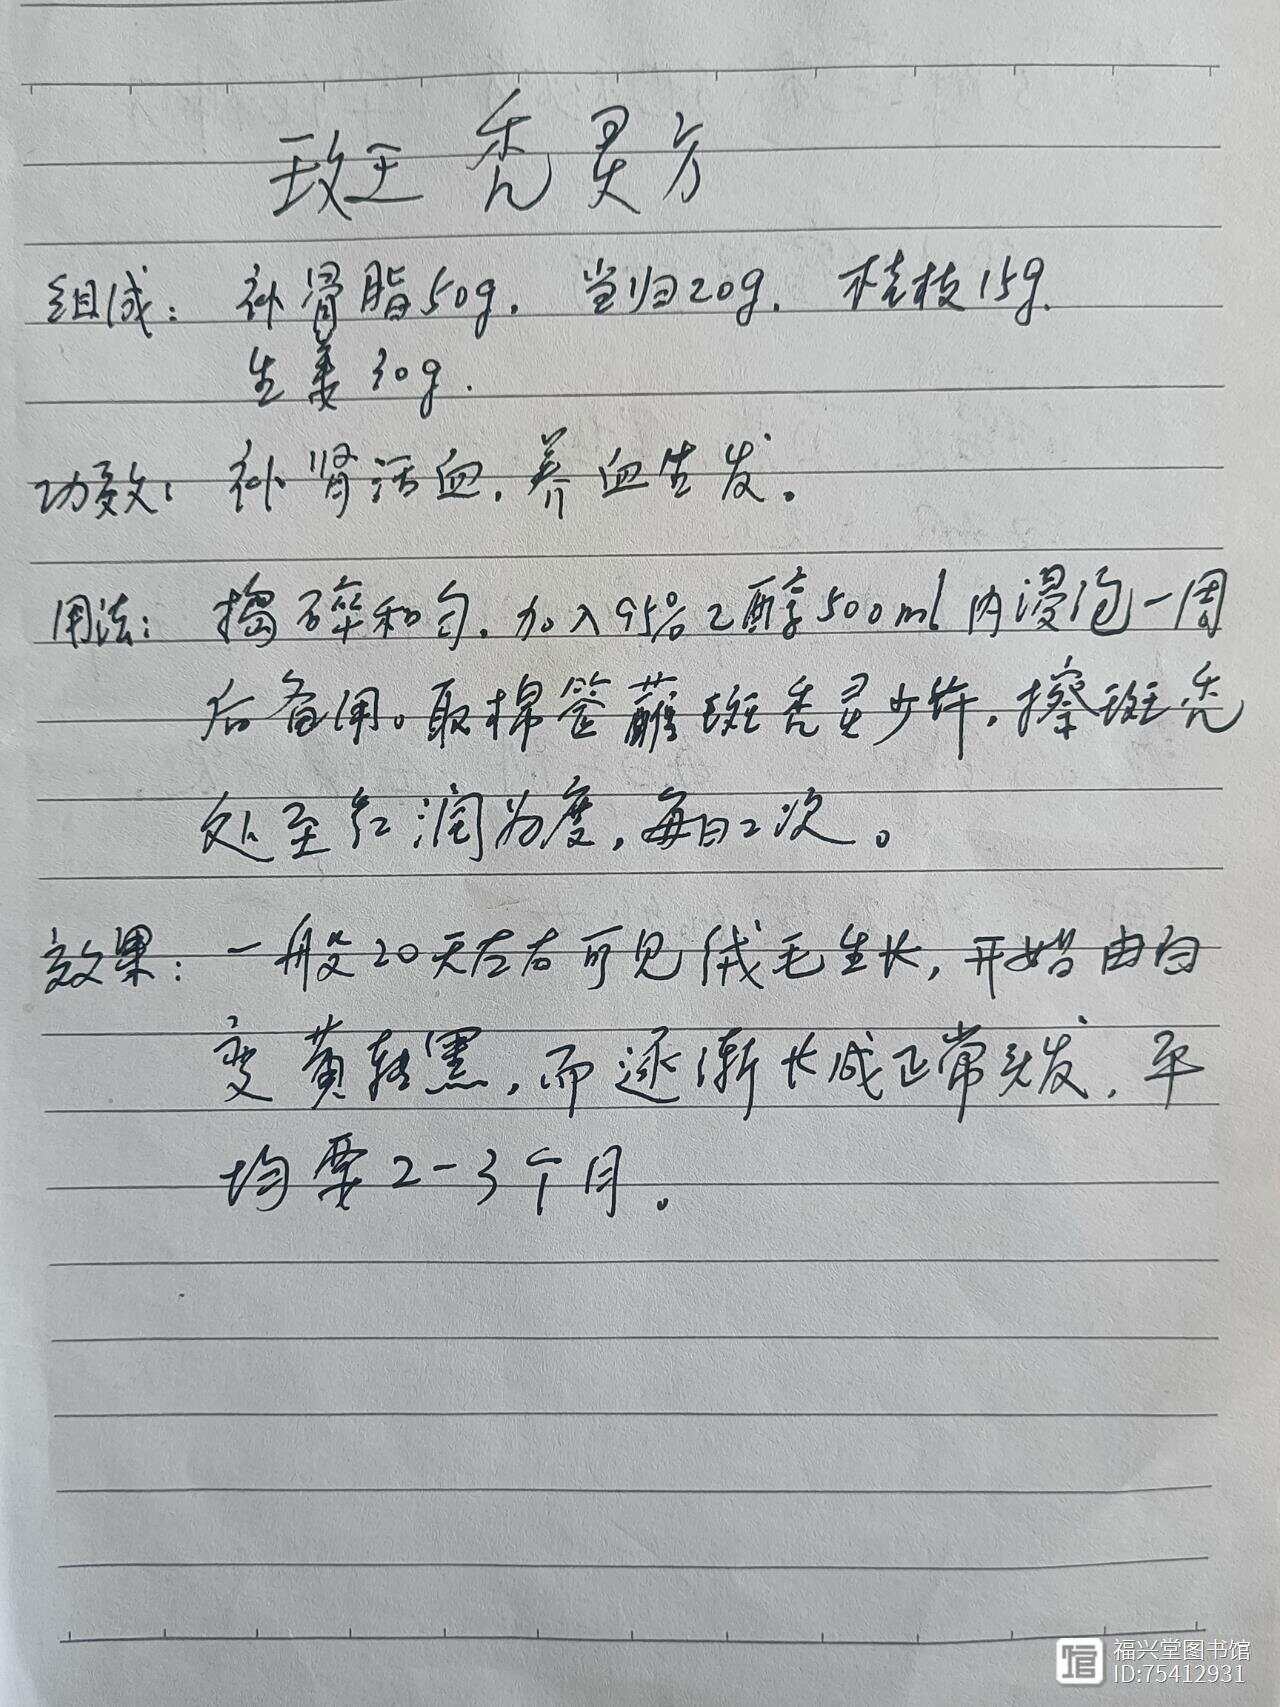 斑秃灵方
组成：补骨脂50g.当归20g.桂枝15g.
生姜30g.
功效：补肾活血.养血生发.
用法：捣碎和匀.加入95%乙醇500ml内浸泡一周
后备用。取棉签蘸斑秃灵少许,擦斑秃
处至红润为度,每日2次。
效果：一般20天左右可见绒毛生长,开始由白
变黄转黑,而逐渐长成正常头发.平
均要2-3个月。
福兴堂图书馆
ID:75412931